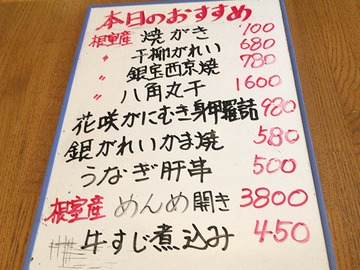 本日のおすすめ
根室産 焼がき 700
〃 干柳がれい 680
〃 銀宝西京焼 780
〃 八角丸干 1600
花咲がにむき身甲羅詰 980
銀がれいかま焼 580
うなぎ肝串 500
根室産 めんめ開き 3800
牛すじ煮込み 450